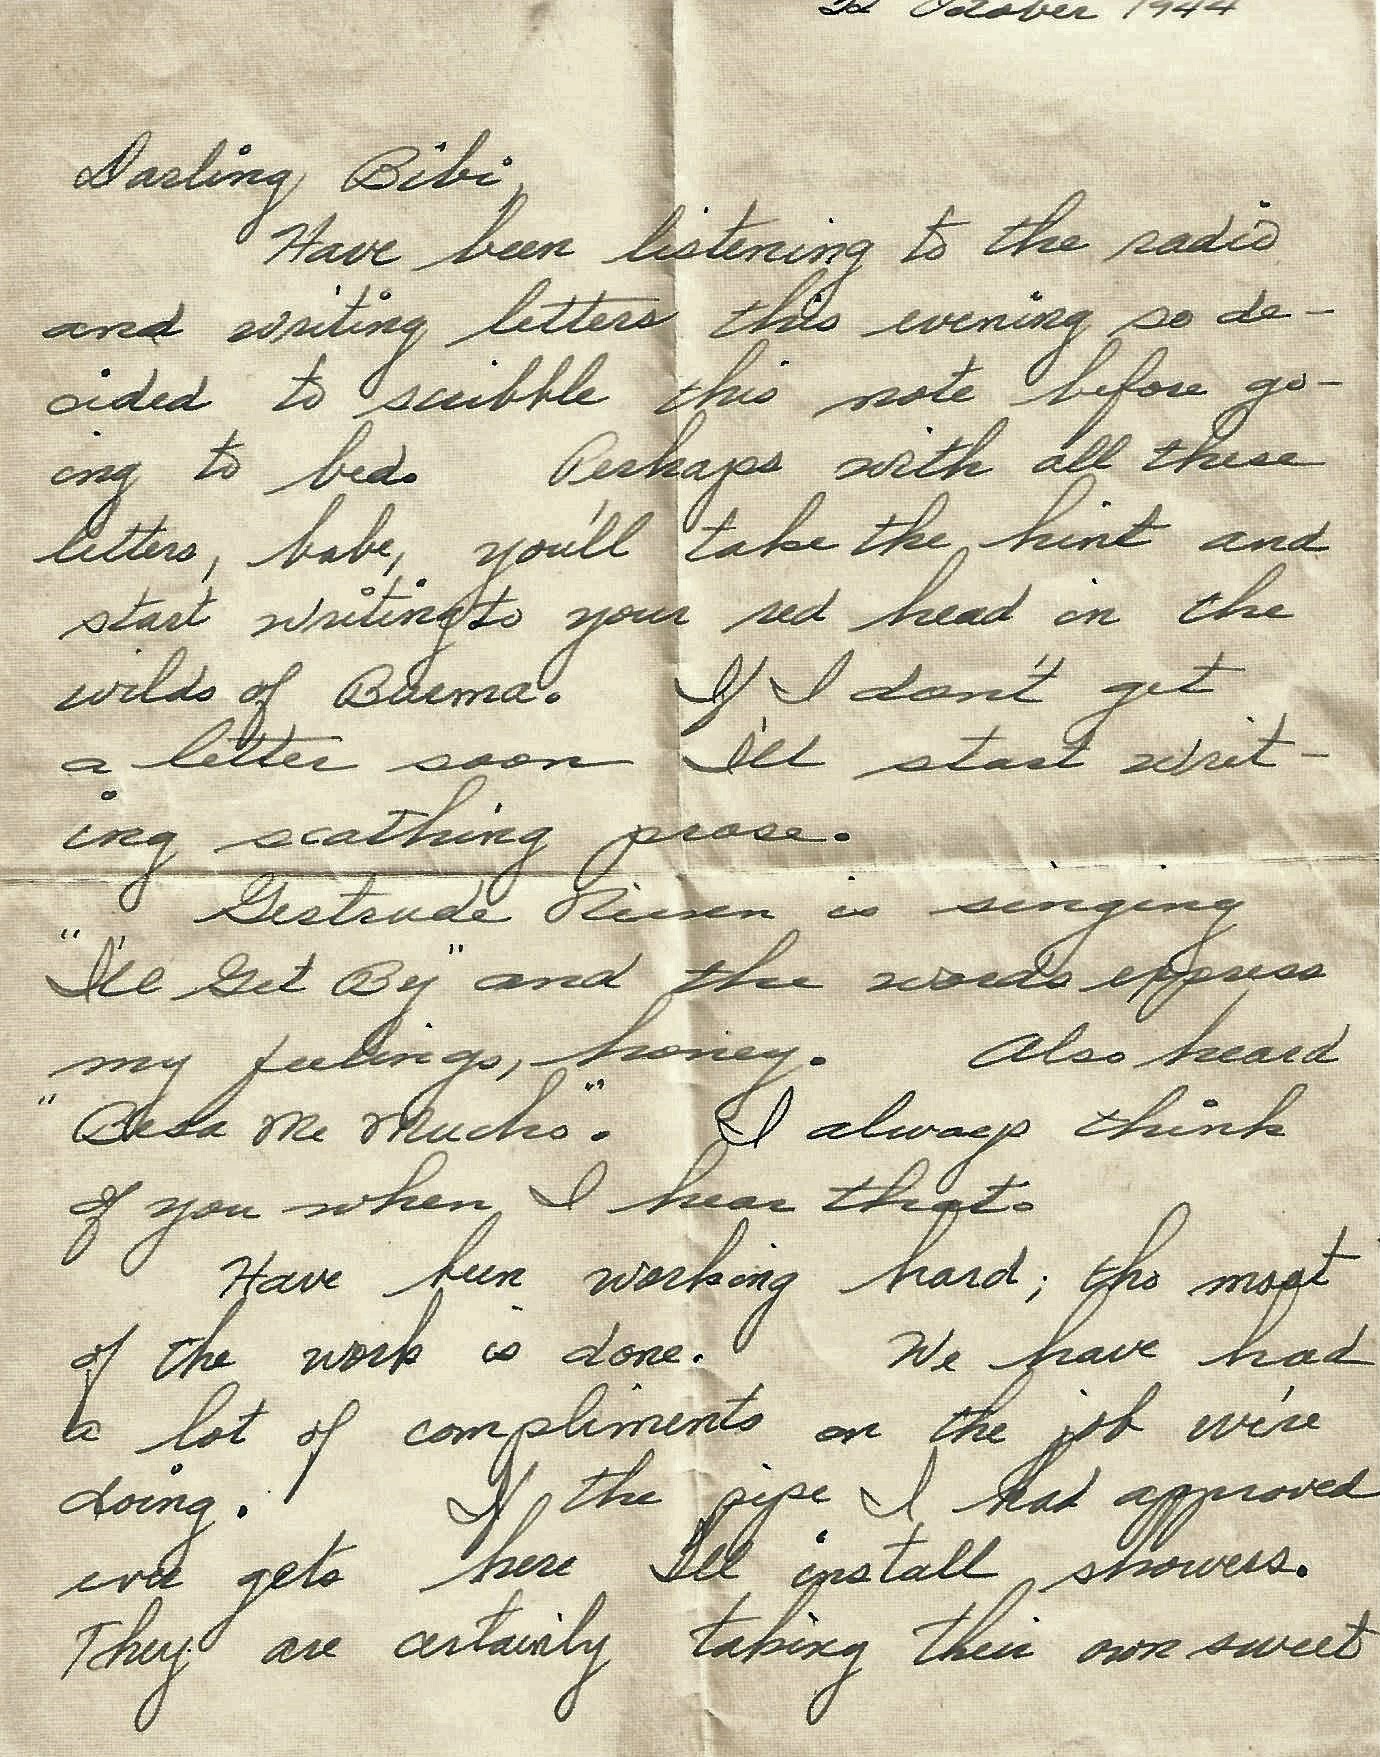 October 1944
Darling Bibi,
Have been listening to the radio
and writing letters this evening so de-
cided to scribble this note before go-
ing to bed. Perhaps with all these
letters, babe, you'll take the hint and
start writing to your red head in the
wilds of Burma. If I don't get
a letter soon I'll start writ-
ing scathing prose.
Gertrude Niesen is singing
"I'll Get By" and the words express
my feelings, honey. Also heard
"Besa Me Mucho". I always think
of you when I hear that.
Have been working hard; tho most
of the work is done. We have had
a lot of compliments on the job we're
doing. If the pipe I had approved
ever gets here I'll install showers.
They are certainly taking their own sweet